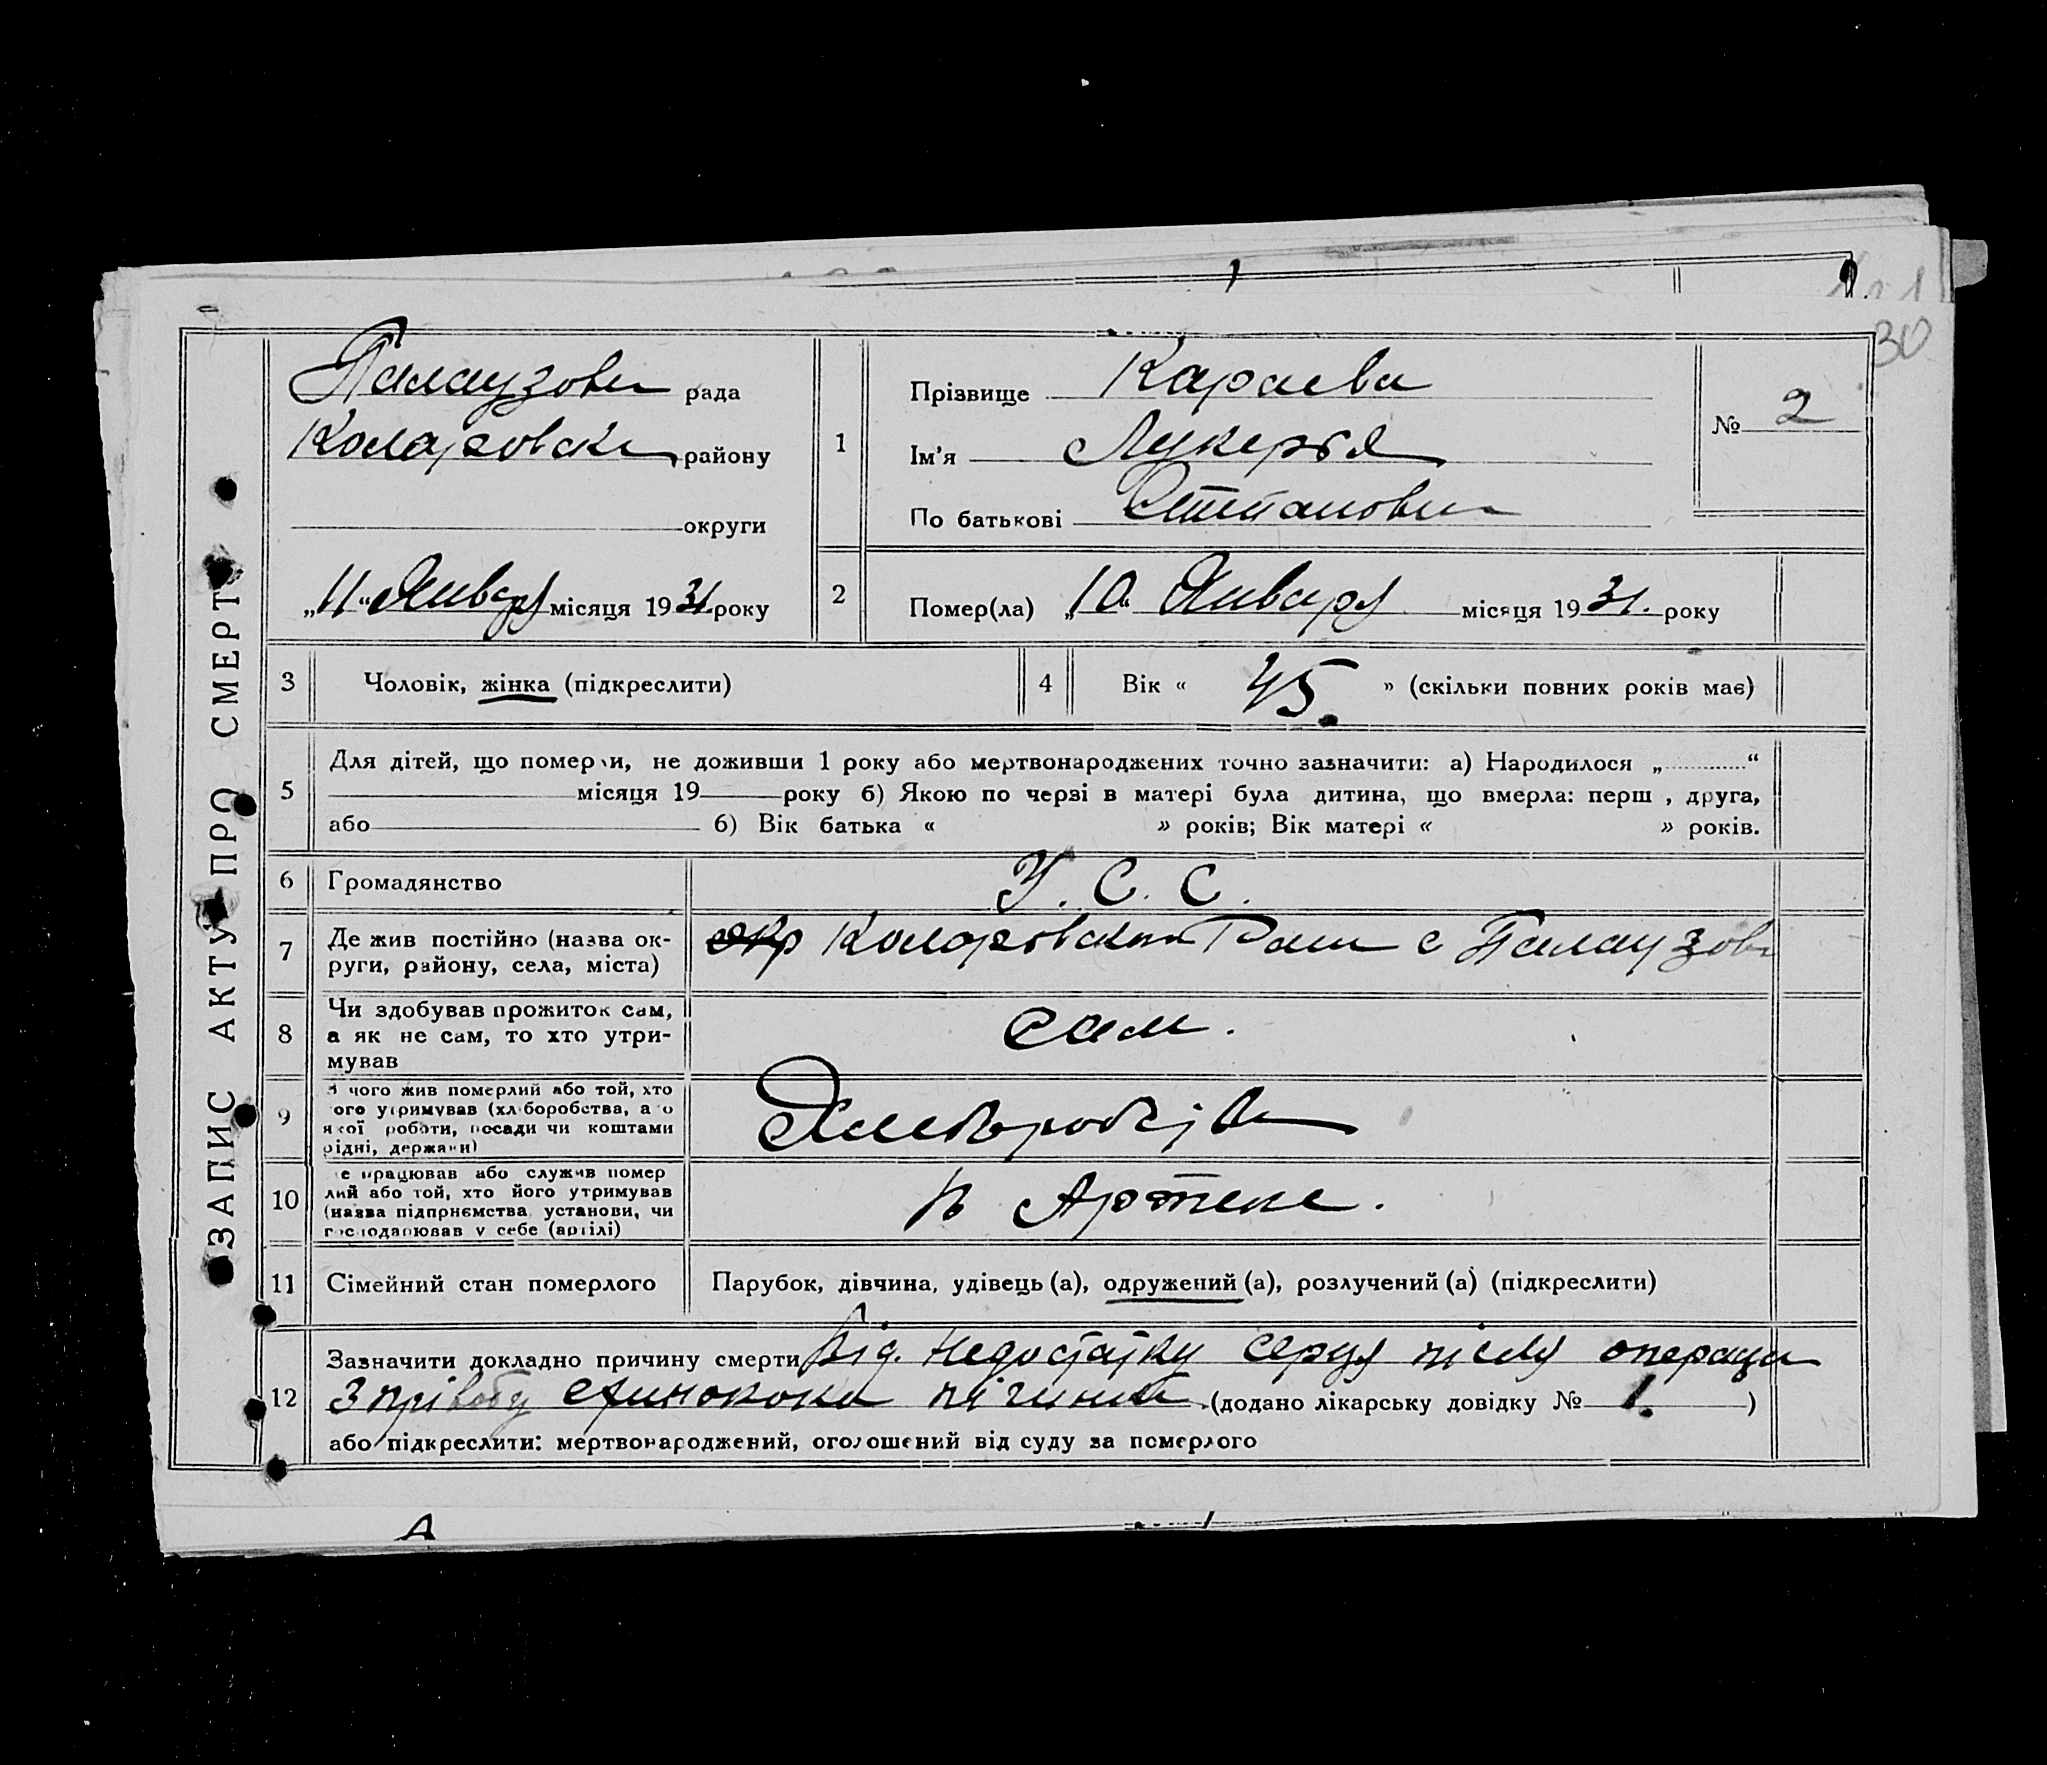 30
ЗАПИС АКТУ ПРО СМЕРТЬ
Палаузовка рада
Коларовск району
округи
„11“ Января місяця 1931 року
1
Прізвище Караева
Ім'я Лукерья
По батькові Степановна
№ 2
2 Помер(ла) „10“ Января місяця 1931. року
3 Чоловік, жінка (підкреслити)
4 Вік « 45. » (скільки повних років має)
5 Для дітей, що померли, не доживши 1 року або мертвонароджених точно зазначити: а) Народилося „ “
місяця 19 року б) Якою по черзі в матері була дитина, що вмерла: перш , друга,
або б) Вік батька « » років; Вік матері « » років.
6 Громадянство У. С. С.
7 Де жив постійно (назва ок-
руги, району, села, міста) окр Коларовский с Палаузовк
8 Чи здобував прожиток сам,
а як не сам, то хто утри-
мував
сам.
9 З чого жив померлий або той, хто
його утримував (хліборобства, або
якої роботи, посади чи коштами
рідні, держави)
10 Де працював або служив помер
лий або той, хто його утримував
(назва підприємства, установи, чи
господарював у себе (артілі)
в Артеле.
11 Сімейний стан померлого Парубок, дівчина, удівець (а), одружений (а), розлучений (а) (підкреслити)
12 Зазначити докладно причину смерти Від. недостатку серця після операци
з прівобу ехинокока пічинки (додано лікарську довідку № 1. )
або підкреслити: мертвонароджений, оголошений від суду за померлого